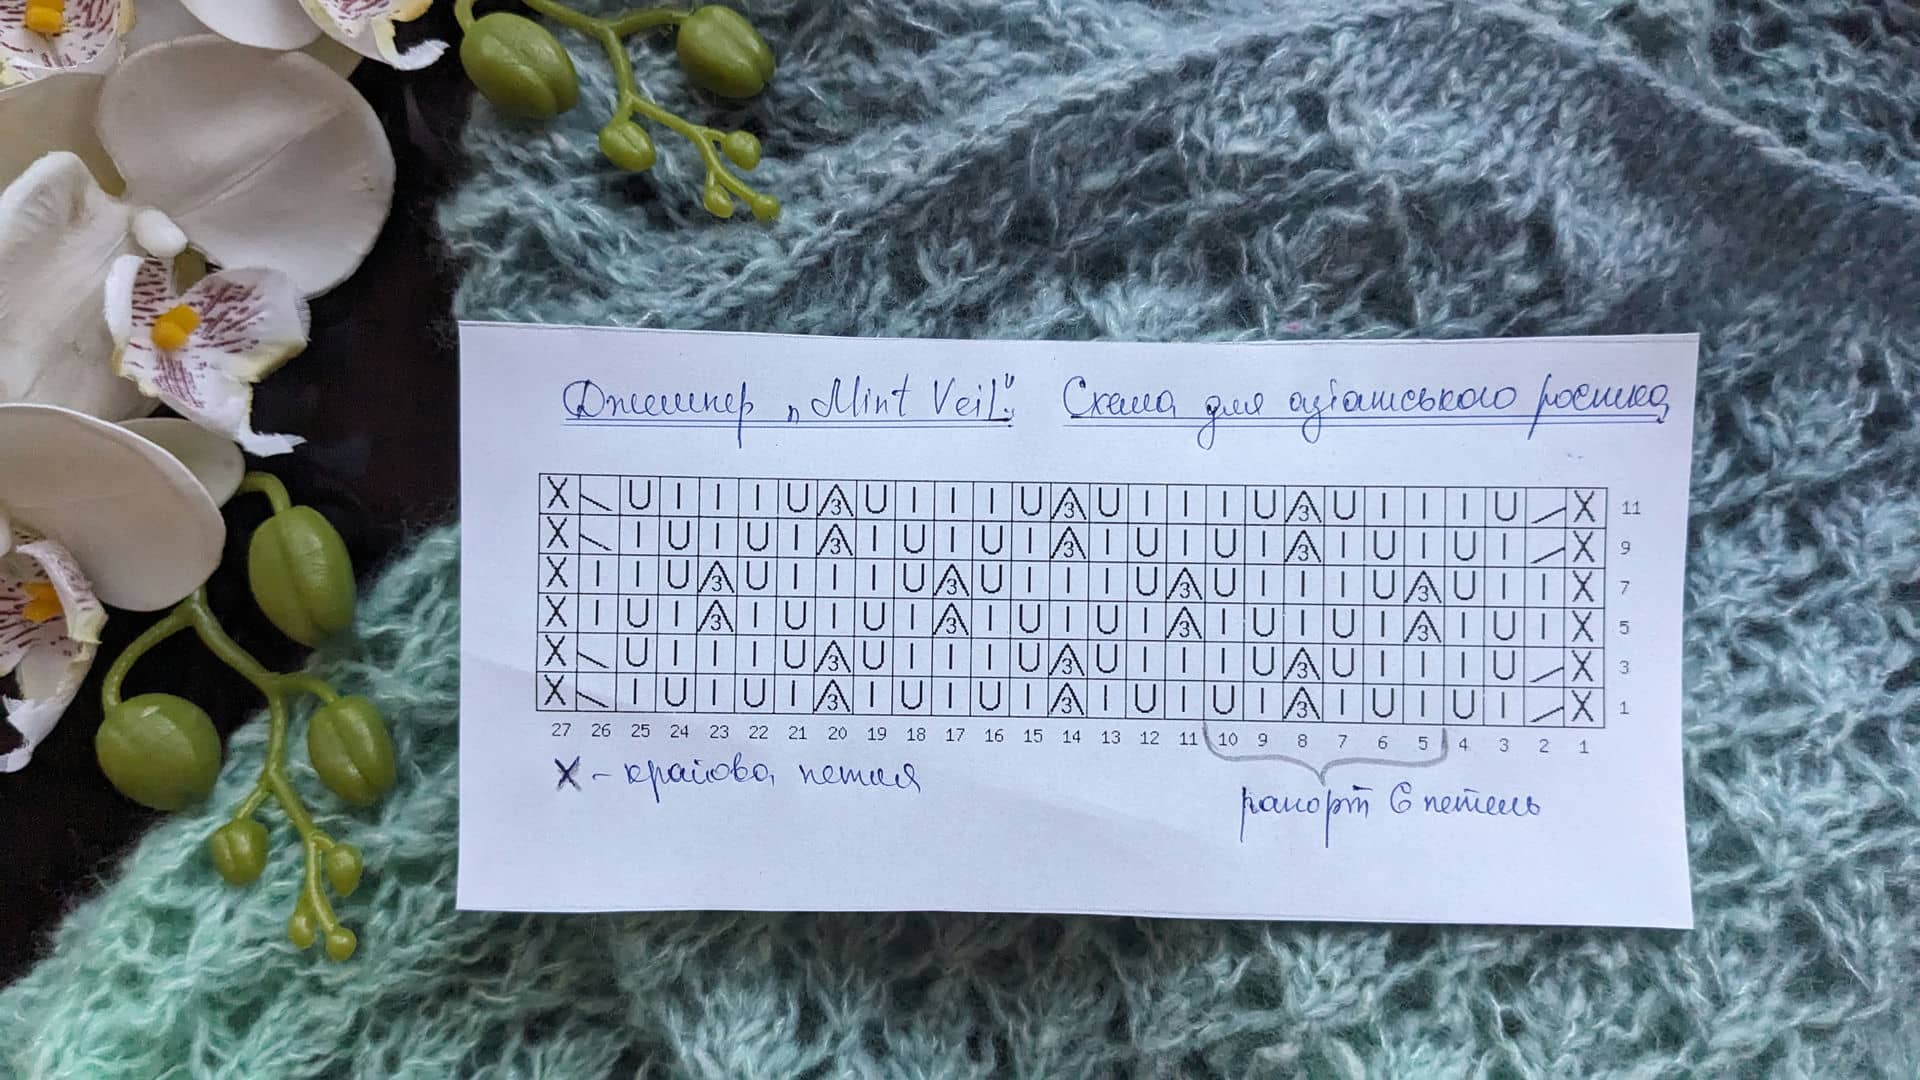 Джемпер „Mint Veil". Схема для азіатського ростка
X \ U I I I U 3 U I I I U 3 U I I I U 3 U I I I U / X 11
X \ I U I U I 3 I U I U I 3 I U I U I 3 I U I U I / X 9
X I I U 3 U I I I U 3 U I I I U 3 U I I I U 3 U I I X 7
X I U I 3 I U I U I 3 I U I U I 3 I U I U I 3 I U I X 5
X \ U I I I U 3 U I I I U 3 U I I I U 3 U I I I U / X 3
X \ I U I U I 3 I U I U I 3 I U I U I 3 I U I U I / X 1
27 26 25 24 23 22 21 20 19 18 17 16 15 14 13 12 11 10 9 8 7 6 5 4 3 2 1
X - крайова петля
рапорт 6 петель